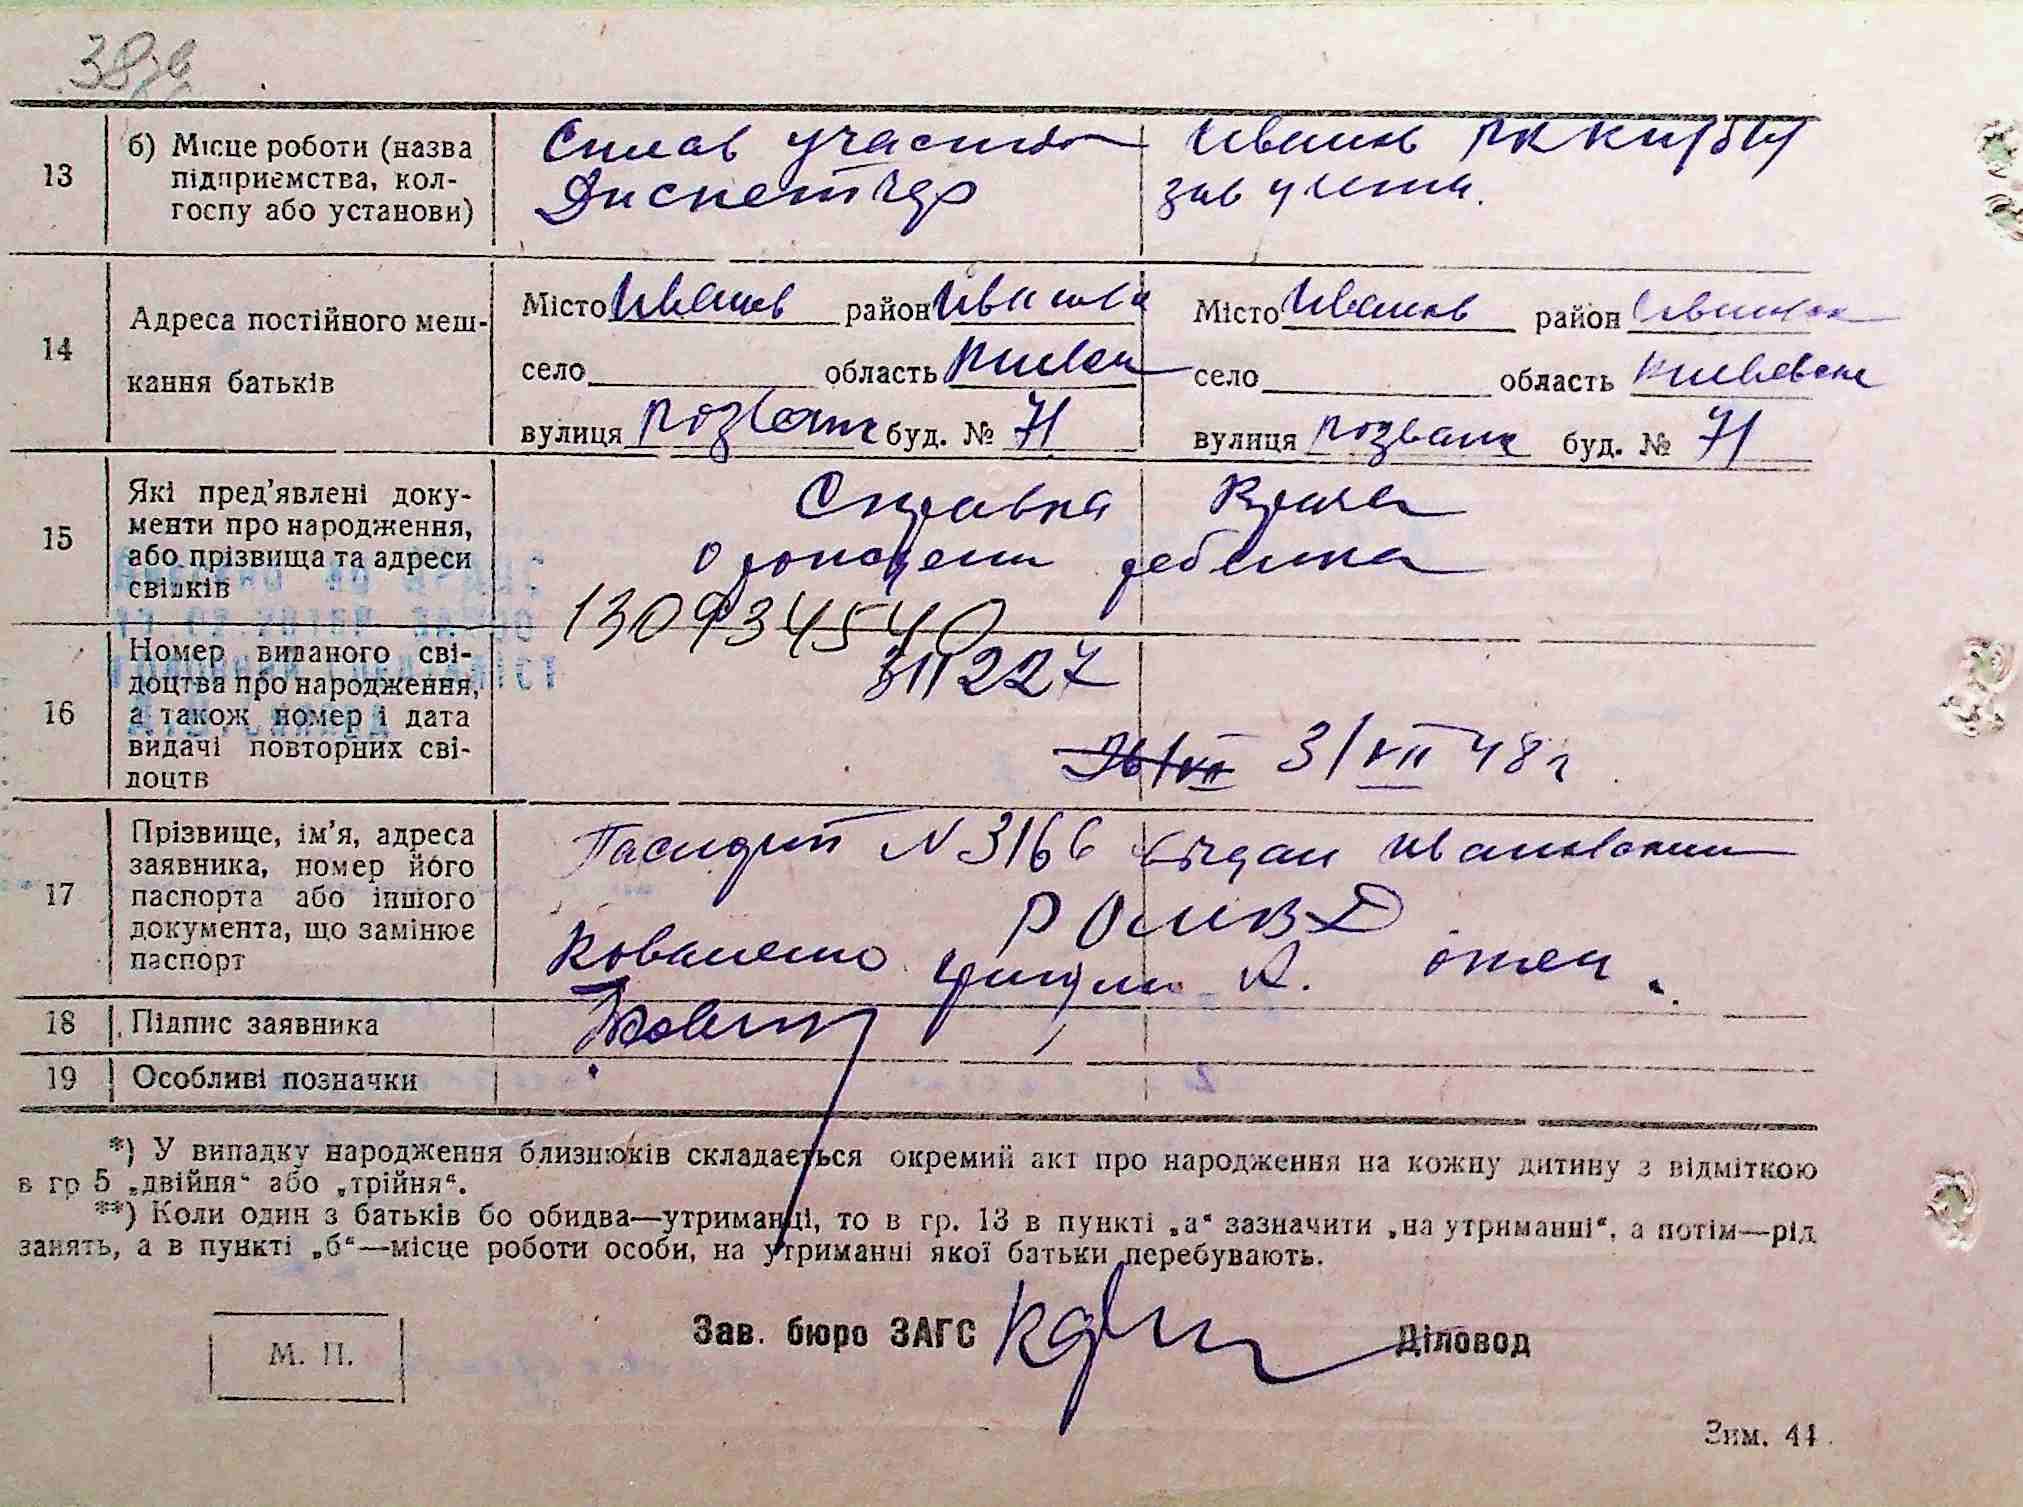 13
б) Місце роботи (назва
підприємства, кол-
госпу або установи)
Сплав участка
Диспетчер
Иванков
зав учета.
14
Адреса постійного меш-
кання батьків
Місто Иванков район Иванков
село область Киевск
вулиця Розважев буд. № 71
Місто Иванков район Иванков
село область Киевская
вулиця Розваж буд. № 71
15
Які пред'явлені доку-
менти про народження,
або прізвища та адреси
свідків
Справка Врача
о рождении ребенка
130934540
16
Номер виданого сві-
доцтва про народження,
а також номер і дата
видачі повторних сві-
доцтв
311227
26/VII 31/VII 48 г
17
Прізвище, ім'я, адреса
заявника, номер його
паспорта або іншого
документа, що замінює
паспорт
Паспорт № 3166 выдан Иванковским
РОМВД
Коваленко А. отец.
18 Підпис заявника
19 Особливі позначки
*) У випадку народження близнюків складається окремий акт про народження на кожну дитину з відміткою
в гр 5 „двійня“ або „трійня“.
**) Коли один з батьків бо обидва—утриманці, то в гр. 13 в пункті „а“ зазначити „на утриманні“, а потім—рід
занять, а в пункті „б“—місце роботи особи, на утриманні якої батьки перебувають.
Зав. бюро ЗАГС Діловод
М. П.
Зим. 44